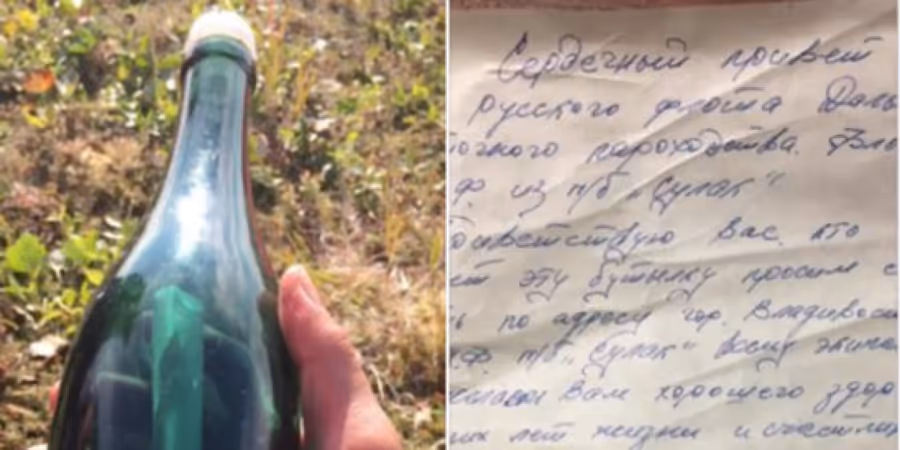 Сердечный привет
русского флота Даль
точного пароходства.
Ф. из п/б „Сулак"
риветствую вас, кто
ет эту бутылку просим с
ь по адресу гор. Владивост
Ф. п/б „Сулак" всему экипа
желаем Вам хорошего здор
гих лет жизни и счастлив